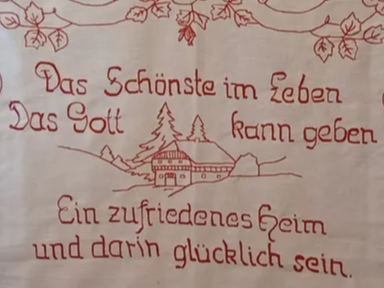 Das Schönste im Leben
Das Gott kann geben
Ein zufriedenes Heim
und darin glücklich sein.